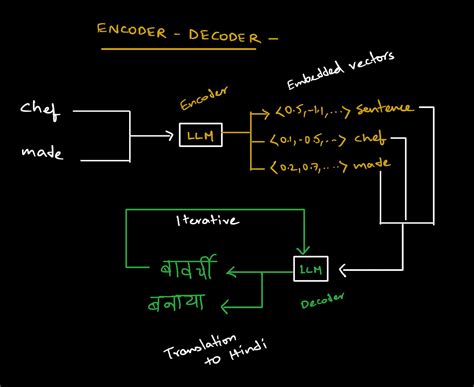 ENCODER - DECODER -
Embedded vectors
Encoder
chef
made
LLM
<0.5,-1.1,...> sentence
<0.1,-0.5,...> chef
<0.2,0.7,....> made
Iterative
बावर्ची
बनाया
LLM
Decoder
Translation
to Hindi